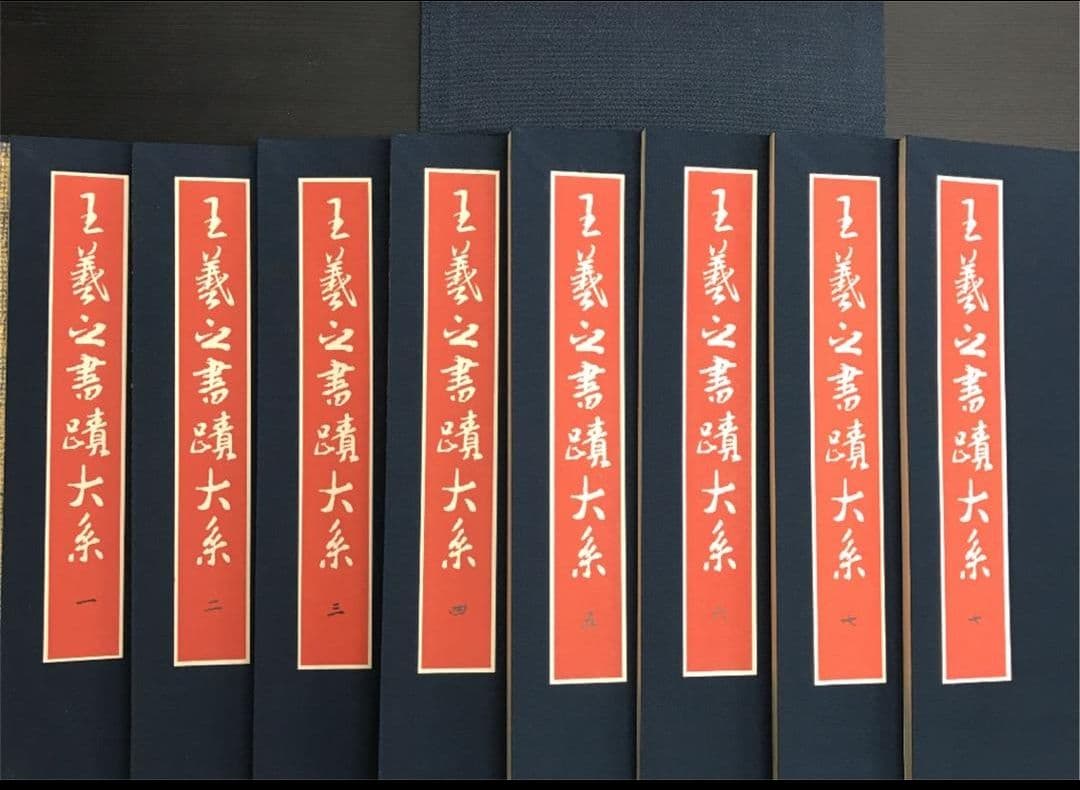 王羲之書蹟大系 一
王羲之書蹟大系 二
王羲之書蹟大系 三
王羲之書蹟大系 四
王羲之書蹟大系 五
王羲之書蹟大系 六
王羲之書蹟大系 七
王羲之書蹟大系